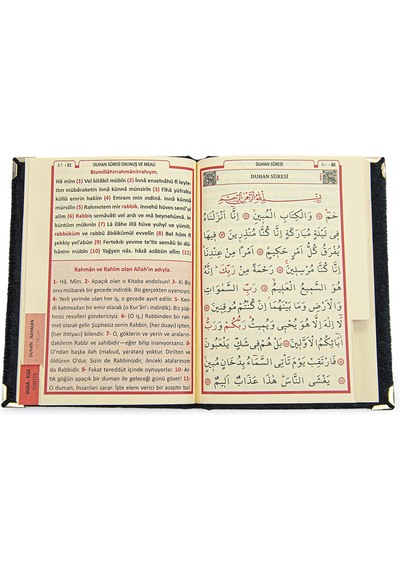 ٨١ - 81 DUHAN SÛRESİ OKUNUŞ VE MEALİ
Bismillâhirrahmânirrahıym.
Hâ mîm (1) Vel kitâbil mübîn (2) İnnâ enzelnâhü fî leyle-
tim mübâraketin innâ künnâ münzirîn (3) Fîhâ yüfraku
küllü emrin hakîm (4) Emram min indinâ. innâ künnâ
mürsilîn (5) Rahmetem mir rabbik. innehû hüves semî'ul
alîm (6) Rabbis semâvâti vel ardı ve mâ beynehümâ. in
küntüm mûkınîn (7) Lâ ilâhe illâ hüve yuhyî ve yümît.
rabbüküm ve rabbü âbâikümül evvelîn (8) Bel hüm fî
şekkiy yel'abûn (9) Fertekıb yevme te'tis semâü bi dü-
hânim mübîn (10) Yağşen nâs. hâzâ azâbün elîm (11)
Rahmân ve Rahîm olan Allah'ın adıyla.
1- Hâ, Mîm. 2- Apaçık olan o Kitaba andolsun! 3- Ki Biz
onu mübarek bir gecede indirdik. Biz gerçekten uyarıcıyız.
4- Yerli yerinde olan her iş, o gecede ayırt edilir. 5- Ken-
di katımızdan bir emir olarak (o Kur'ân'ı indirdik). Biz şüp-
hesiz resulleri göndericiyiz. 6- (O iş,) Rabbinden bir rah-
met olarak gelir. Şüphesiz senin Rabbin, (her duayı) işiten,
her şeyi bilendir. 7- O, göklerin ve yerin ve aralarındakilerin
Rabbi ve sahibidir—eğer bilip inanıyorsanız. 8-
O'ndan başka ilah (mabud, yaratan) yoktur. Dirilten ve
öldüren O'dur. Sizin de Rabbinizdir, önceki atalarınızın
da Rabbidir. 9- Fakat tereddüt içinde oynuyorlar. 10- Ar-
tık göğün apaçık bir duman ile geleceği günü gözet! 11-
O duman, İnsanları sarar. İşte elem verici bir azaptır bu!
DUHAN - RAHMAN
VAKIA - KISA
SÛRELER
DUHAN SÛRESİ ٨٠ - 80
DUHAN SÛRESİ
بِسْمِ اللّٰهِ الرَّحْمٰنِ الرَّحِيمِ
حٰمٓ ۝ وَالْكِتَابِ الْمُبِينِ ۝ اِنَّٓا اَنْزَلْنَاهُ
فِى لَيْلَةٍ مُبَارَكَةٍ اِنَّا كُنَّا مُنْذِرِينَ ۝ فِيهَا
يُفْرَقُ كُلُّ اَمْرٍ حَكِيمٍ ۝ اَمْرًا مِنْ عِنْدِنَا
اِنَّا كُنَّا مُرْسِلِينَ ۝ رَحْمَةً مِنْ رَبِّكَ اِنَّهُ
هُوَ السَّمِيعُ الْعَلِيمُ ۝ رَبِّ السَّمٰوَاتِ
وَالْاَرْضِ وَمَا بَيْنَهُمَا اِنْ كُنْتُمْ مُوقِنِينَ ۝
لَٓا اِلٰهَ اِلَّا هُوَ يُحْيِى وَيُمِيتُ رَبُّكُمْ وَرَبُّ
اٰبَٓائِكُمُ الْاَوَّلِينَ ۝ بَلْ هُمْ فِى شَكٍّ يَلْعَبُونَ ۝
فَارْتَقِبْ يَوْمَ تَاْتِى السَّمَٓاءُ بِدُخَانٍ مُبِينٍ ۝
يَغْشَى النَّاسَ هٰذَا عَذَابٌ اَلِيمٌ ۝